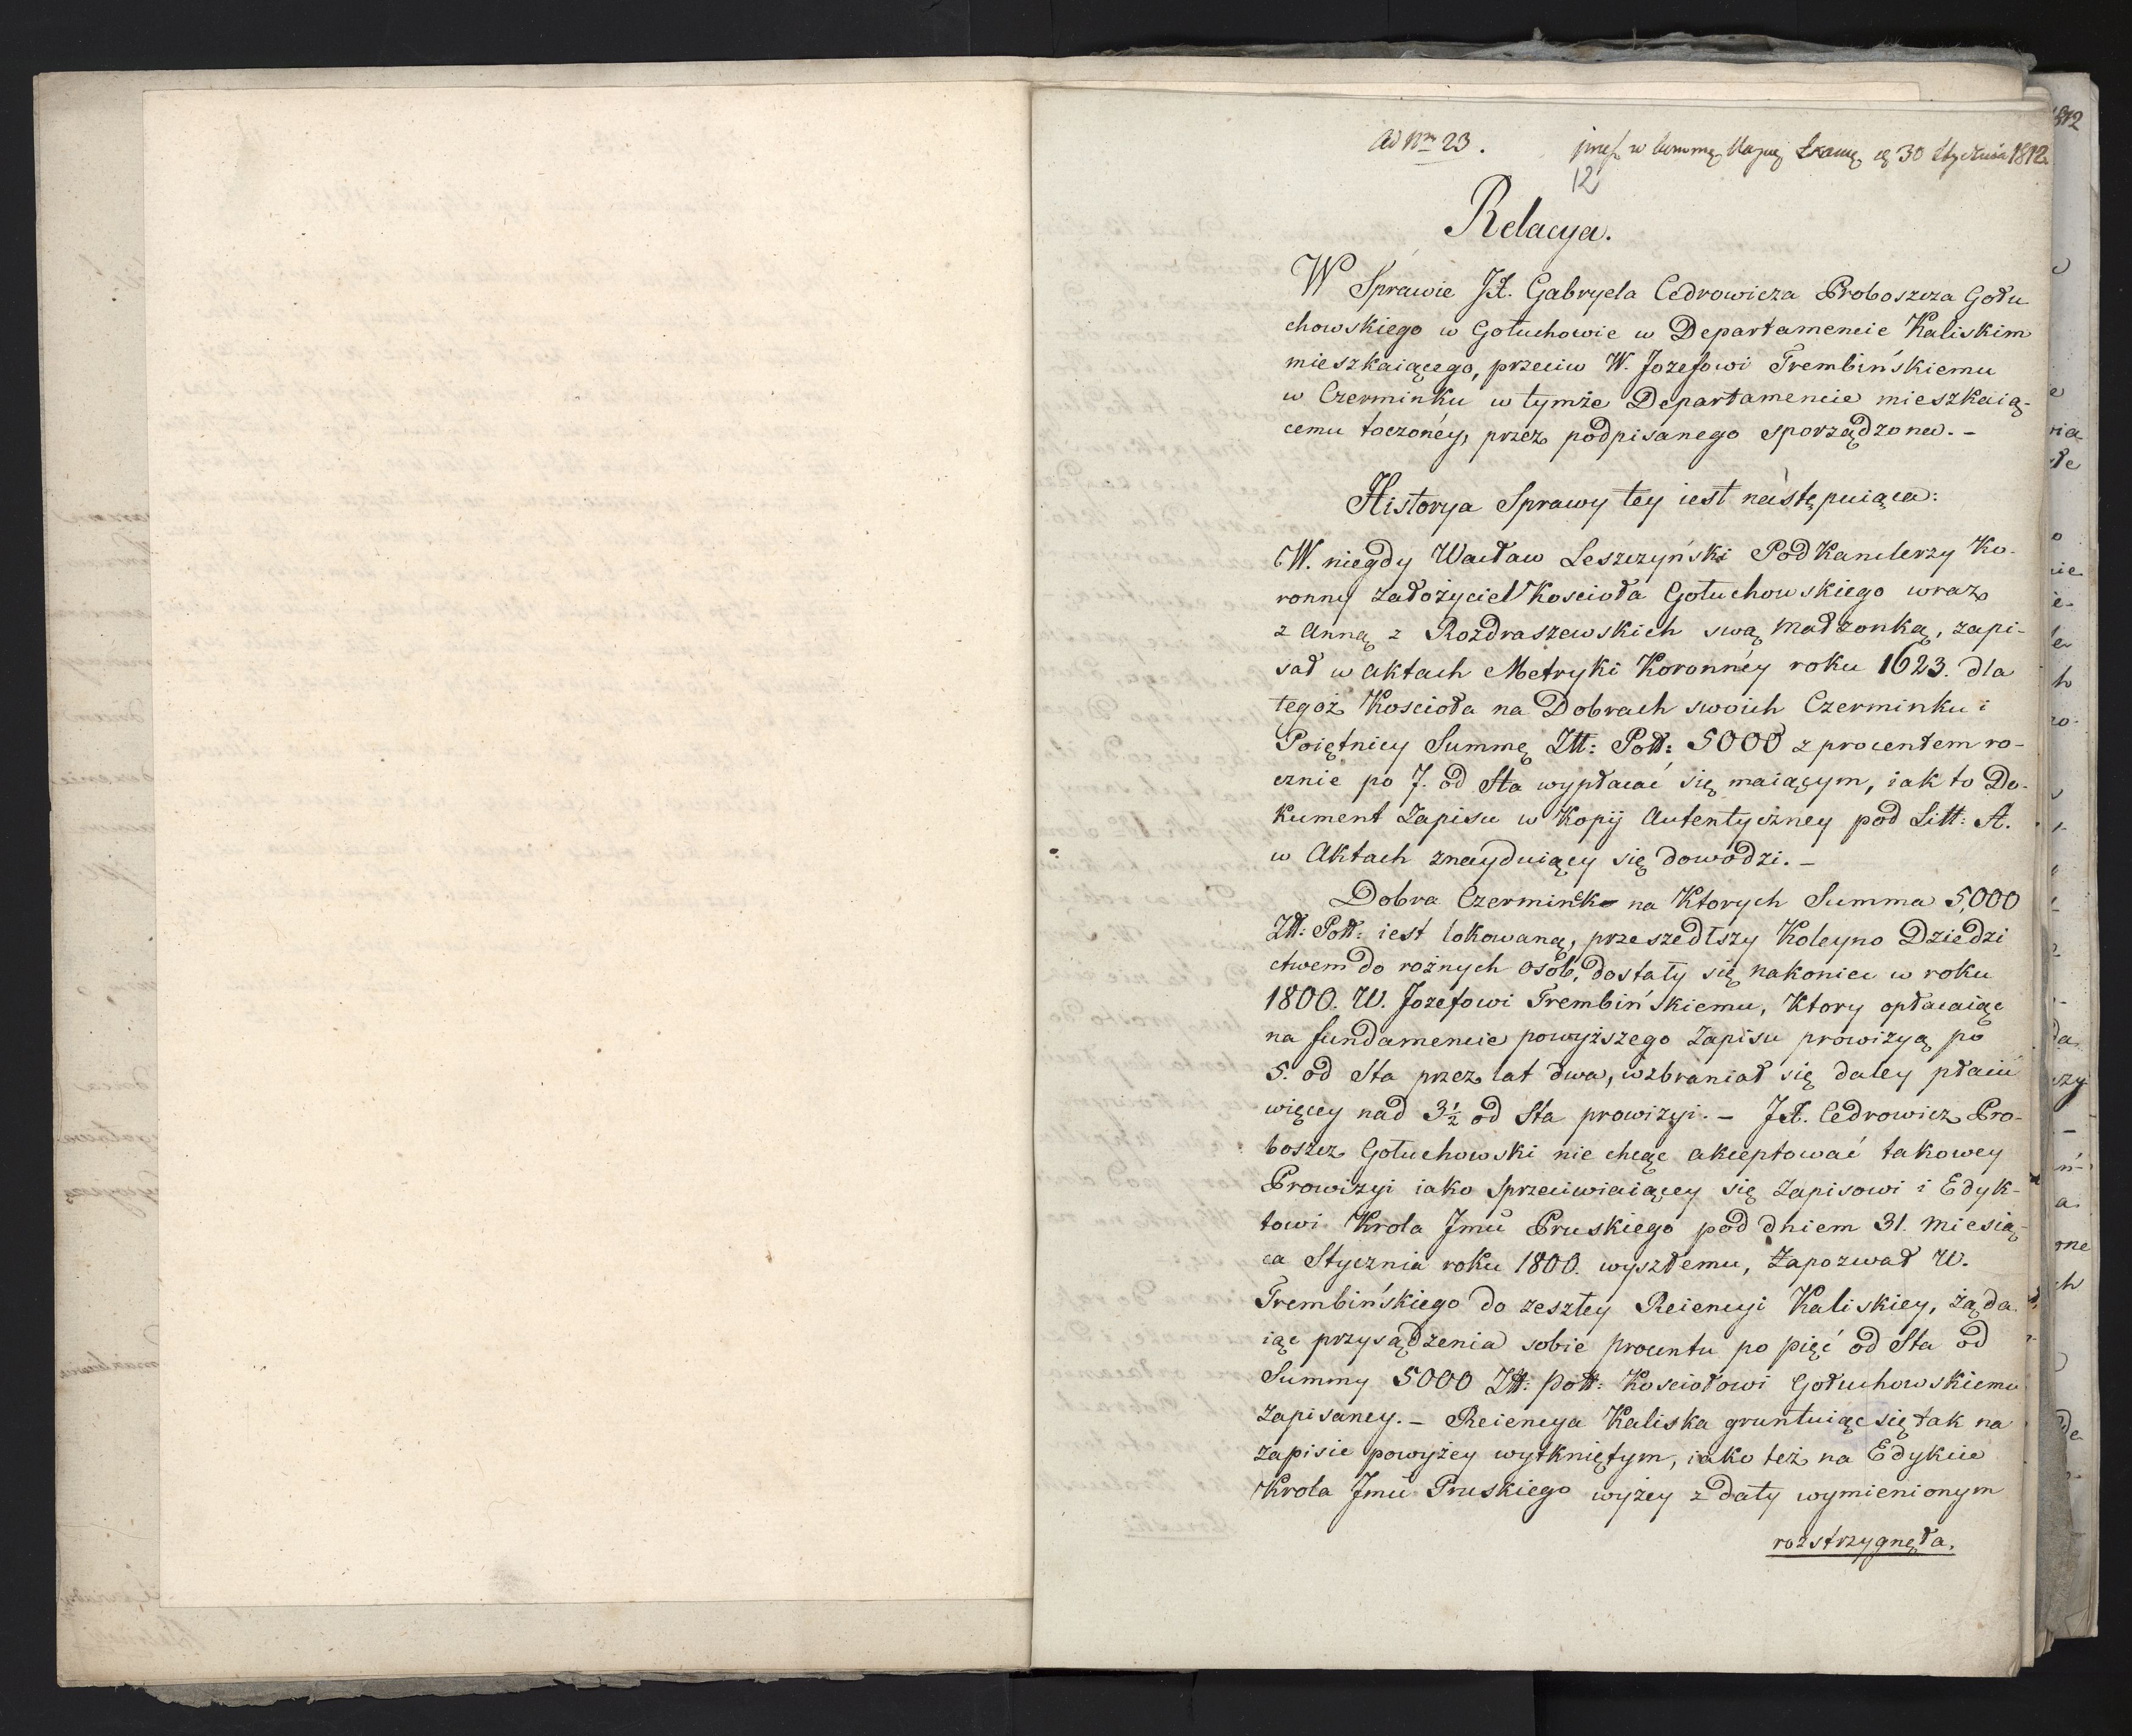 Ad Nrm 23.
30 Stycznia 1812.
12
Relacya.
W Sprawie JX. Gabryela Cedrowicza Proboszcza Gołu
chowskiego w Gołuchowie w Departamencie Kaliskim
mieszkaiącego, przeciw W. Jozefowi Trembińskiemu
w Czerminku w tymże Departamencie mieszkaią-
cemu toczonéy, przez podpisanego sporządzona. -
Historya Sprawy tey iest następuiąca:
W. niegdy Wacław Leszczyński PodKanclerzy Ko-
ronny założyciel Kościoła Gołuchowskiego wraz
z Anną z Rozdraszewskich swą Małżonką, zapi-
sał w Aktach Metryki Koronnéy roku 1623. dla
tegoż Kościoła na Dobrach swoich Czerminku i
Poiętnicy Summę Złł: Poll: 5000 z procentem ro-
cznie po 7. od Sta wypłacać się maiącym, iak to Do-
kument Zapisu w Kopij Autentyczney pod Litt: A.
w Aktach znayduiący się dowodzi. -
Dobra Czermink na Ktorych Summa 5,000
Złł: Poll: iest lokowaną, przeszedłszy Koleyno Dziedzi
ctwem do rożnych osób, dostały się nakoniec w roku
1800. W. Jozefowi Trembińskiemu, Ktory opłacaiąc
na fundamencie powyższego Zapisu prowizyą po
5. od Sta przez lat dwa, wzbraniał się daley płacić
więcey nad 3½ od Sta prowizyi. - JX. Cedrowicz Pro-
boszcz Gołuchowski nie chcąc akceptować takowey
Prowizyi iako sprzeciwiaiącey się Zapisowi i Edyk-
towi Krola Jmci Pruskiego pod dniem 31. Miesią-
ca Stycznia roku 1800. wyszłemu, Zapozwał W.
Trembińskiego do zeszłey Reiencyi Kaliskiey, żąda-
iąc przysądzenia sobie procentu po pięć od Sta od
Summy 5000 Złł: poll: Kościołowi Gołuchowskiemu
zapisaney. - Reiencya Kaliska gruntuiąc się tak na
zapisie powyżey wytkniętym, iako też na Edykcie
Krola Jmci Pruskiego wyżey z daty wymienionym
rozstrzygnęła.